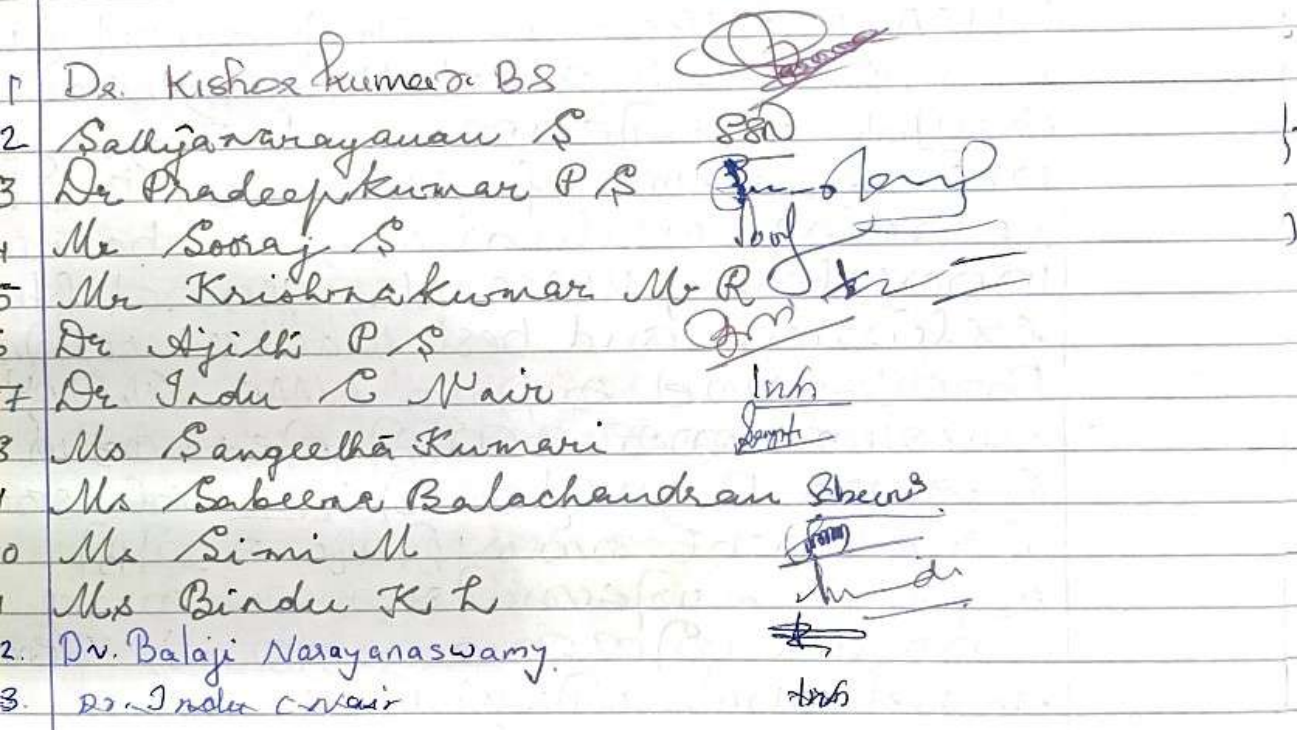 1 Dr. Kishor kumar BS
2 Sathyanarayanan S SSN
3 Dr Pradeepkumar P S
4 Mr Sooraj S
5 Mr Krishnakumar M R
6 Dr Ajith P S
7 Dr Indu C Nair
8 Ms Sangeetha Kumari
Ms Sabeena Balachandran
0 Ms Simi M
1 Ms Bindu K L
2. Dr. Balaji Narayanaswamy.
3. Dr. Indu C Nair